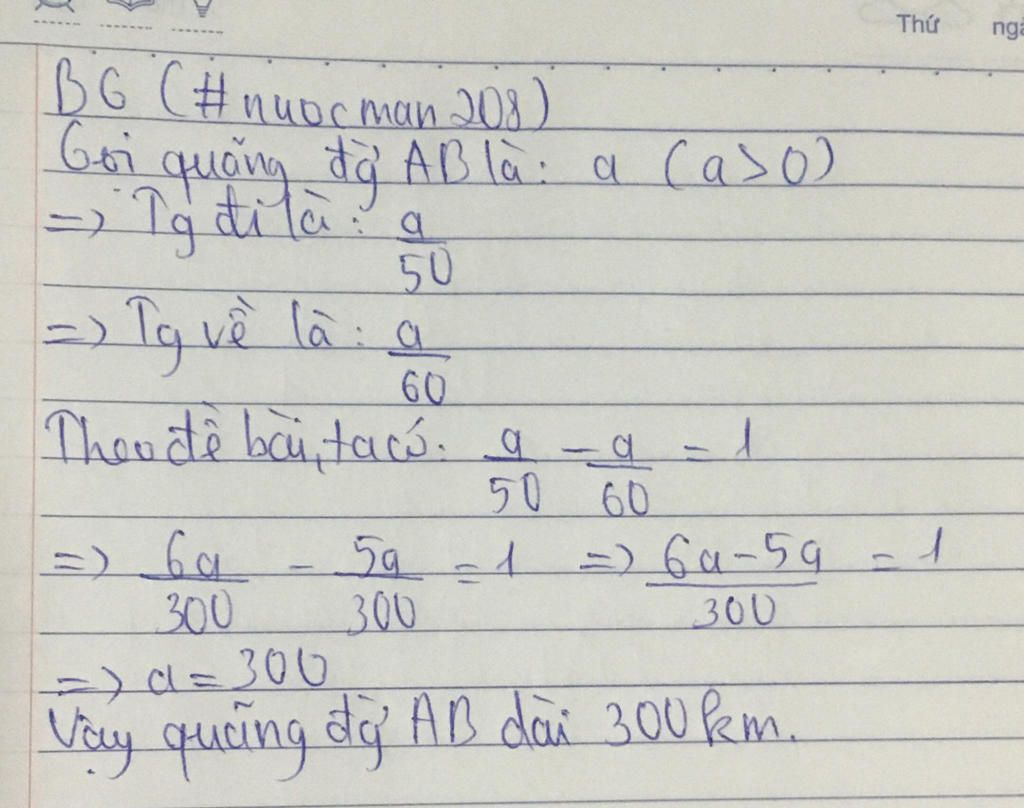 Thứ ngà
BG (#nuocman208)
Gọi quãng đg̀ AB là: a (a>0)
=> Tg đi là: a/50
=> Tg về là: a/60
Theo đề bài, ta có: a/50 - a/60 = 1
=> 6a/300 - 5a/300 = 1 => 6a-5a/300 = 1
=> a = 300
Vậy quãng đg̀ AB dài 300km.